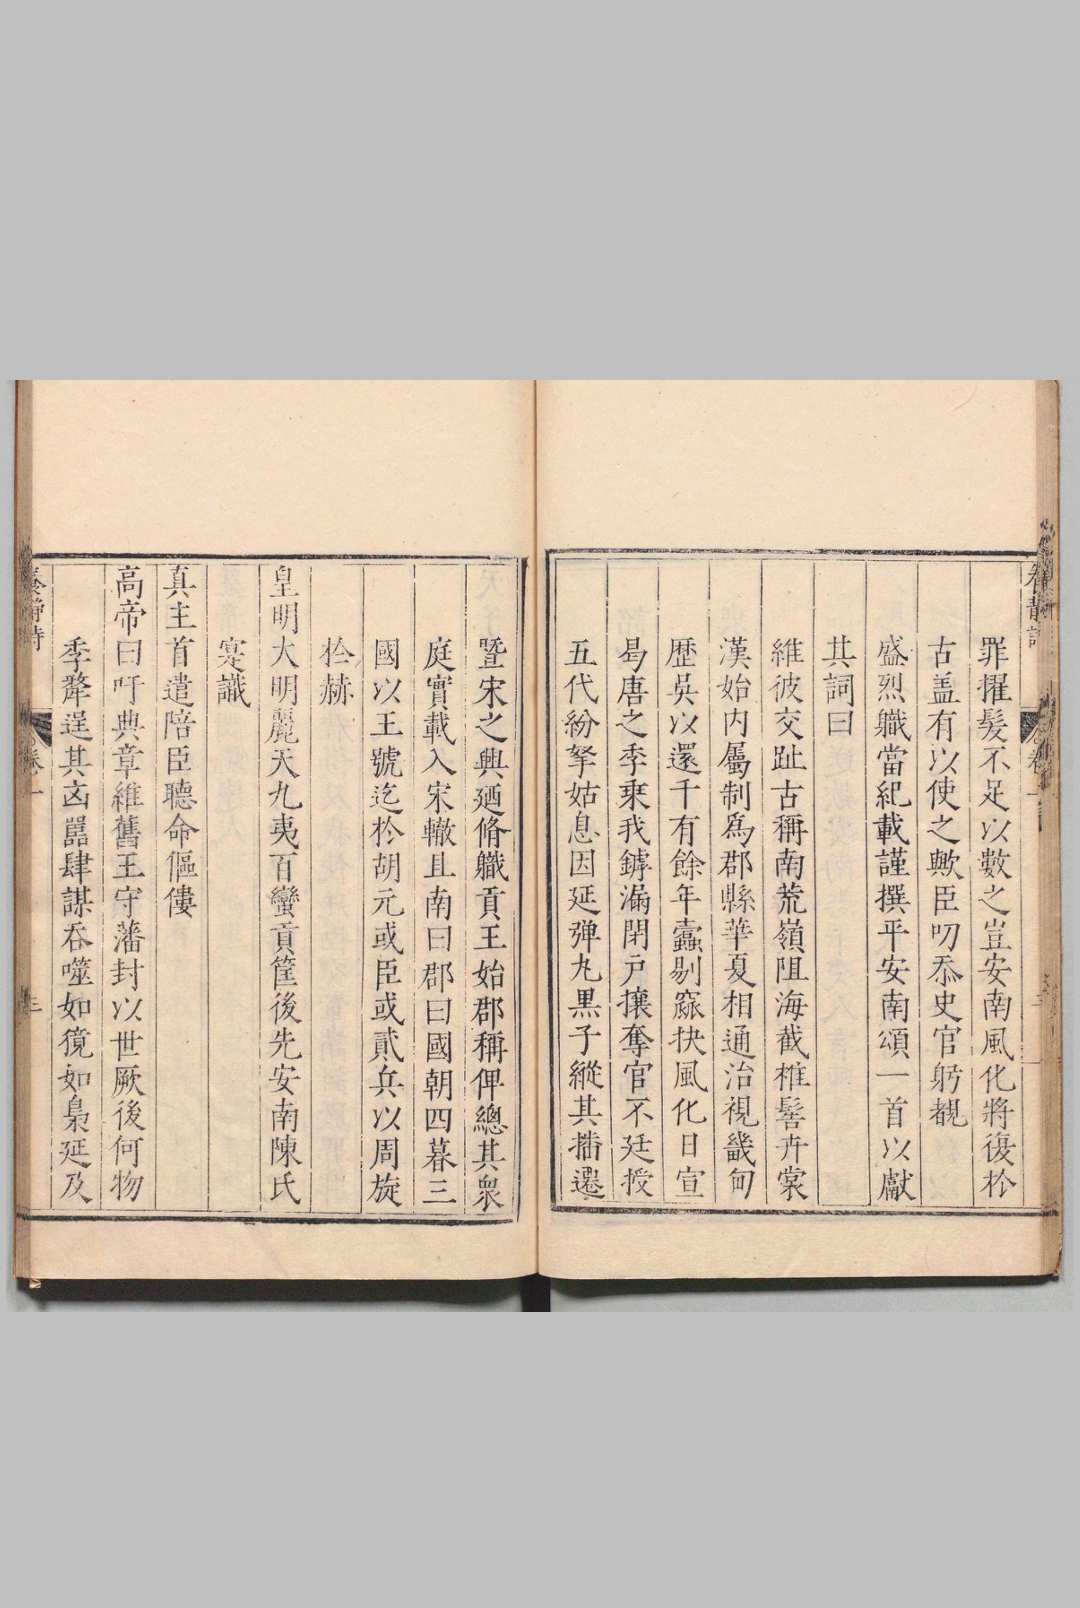 罪擢髮不足以數之豈安南風化將復於
古蓋有以使之歟臣叨忝史官躬覩
盛烈職當紀載謹撰平安南頌一首以獻
其詞曰
維彼交趾古稱南荒嶺阻海截椎髻卉裳
漢始内屬制爲郡縣華夏相通治視畿甸
歷吳以還千有餘年蠹剔竅抉風化日宣
曷唐之季乘我鏬漏閉戸攘奪官不廷授
五代紛拏姑息因延彈丸黒子縱其播遷
暨宋之興廼脩職貢王始郡稱俾總其衆
庭實載入宋轍且南曰郡曰國朝四暮三
國以王號迄於胡元或臣或貳兵以周旋
於赫
皇明大明麗天九夷百蠻貢筐後先安南陳氏
寔識
真主首遣陪臣聽命傴僂
高帝曰吁典章維舊王守藩封以世厥後何物
季犛逞其凶嚚肆謀吞噬如獍如梟延及
卷一
三